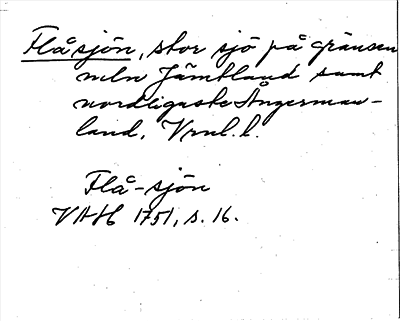 Flåsjön, stor sjö på gränsen
mln Jämtland samt
nordligaste Ångerman-
land, Vrml.l.
Flå-sjön
VAH 1751, s. 16.